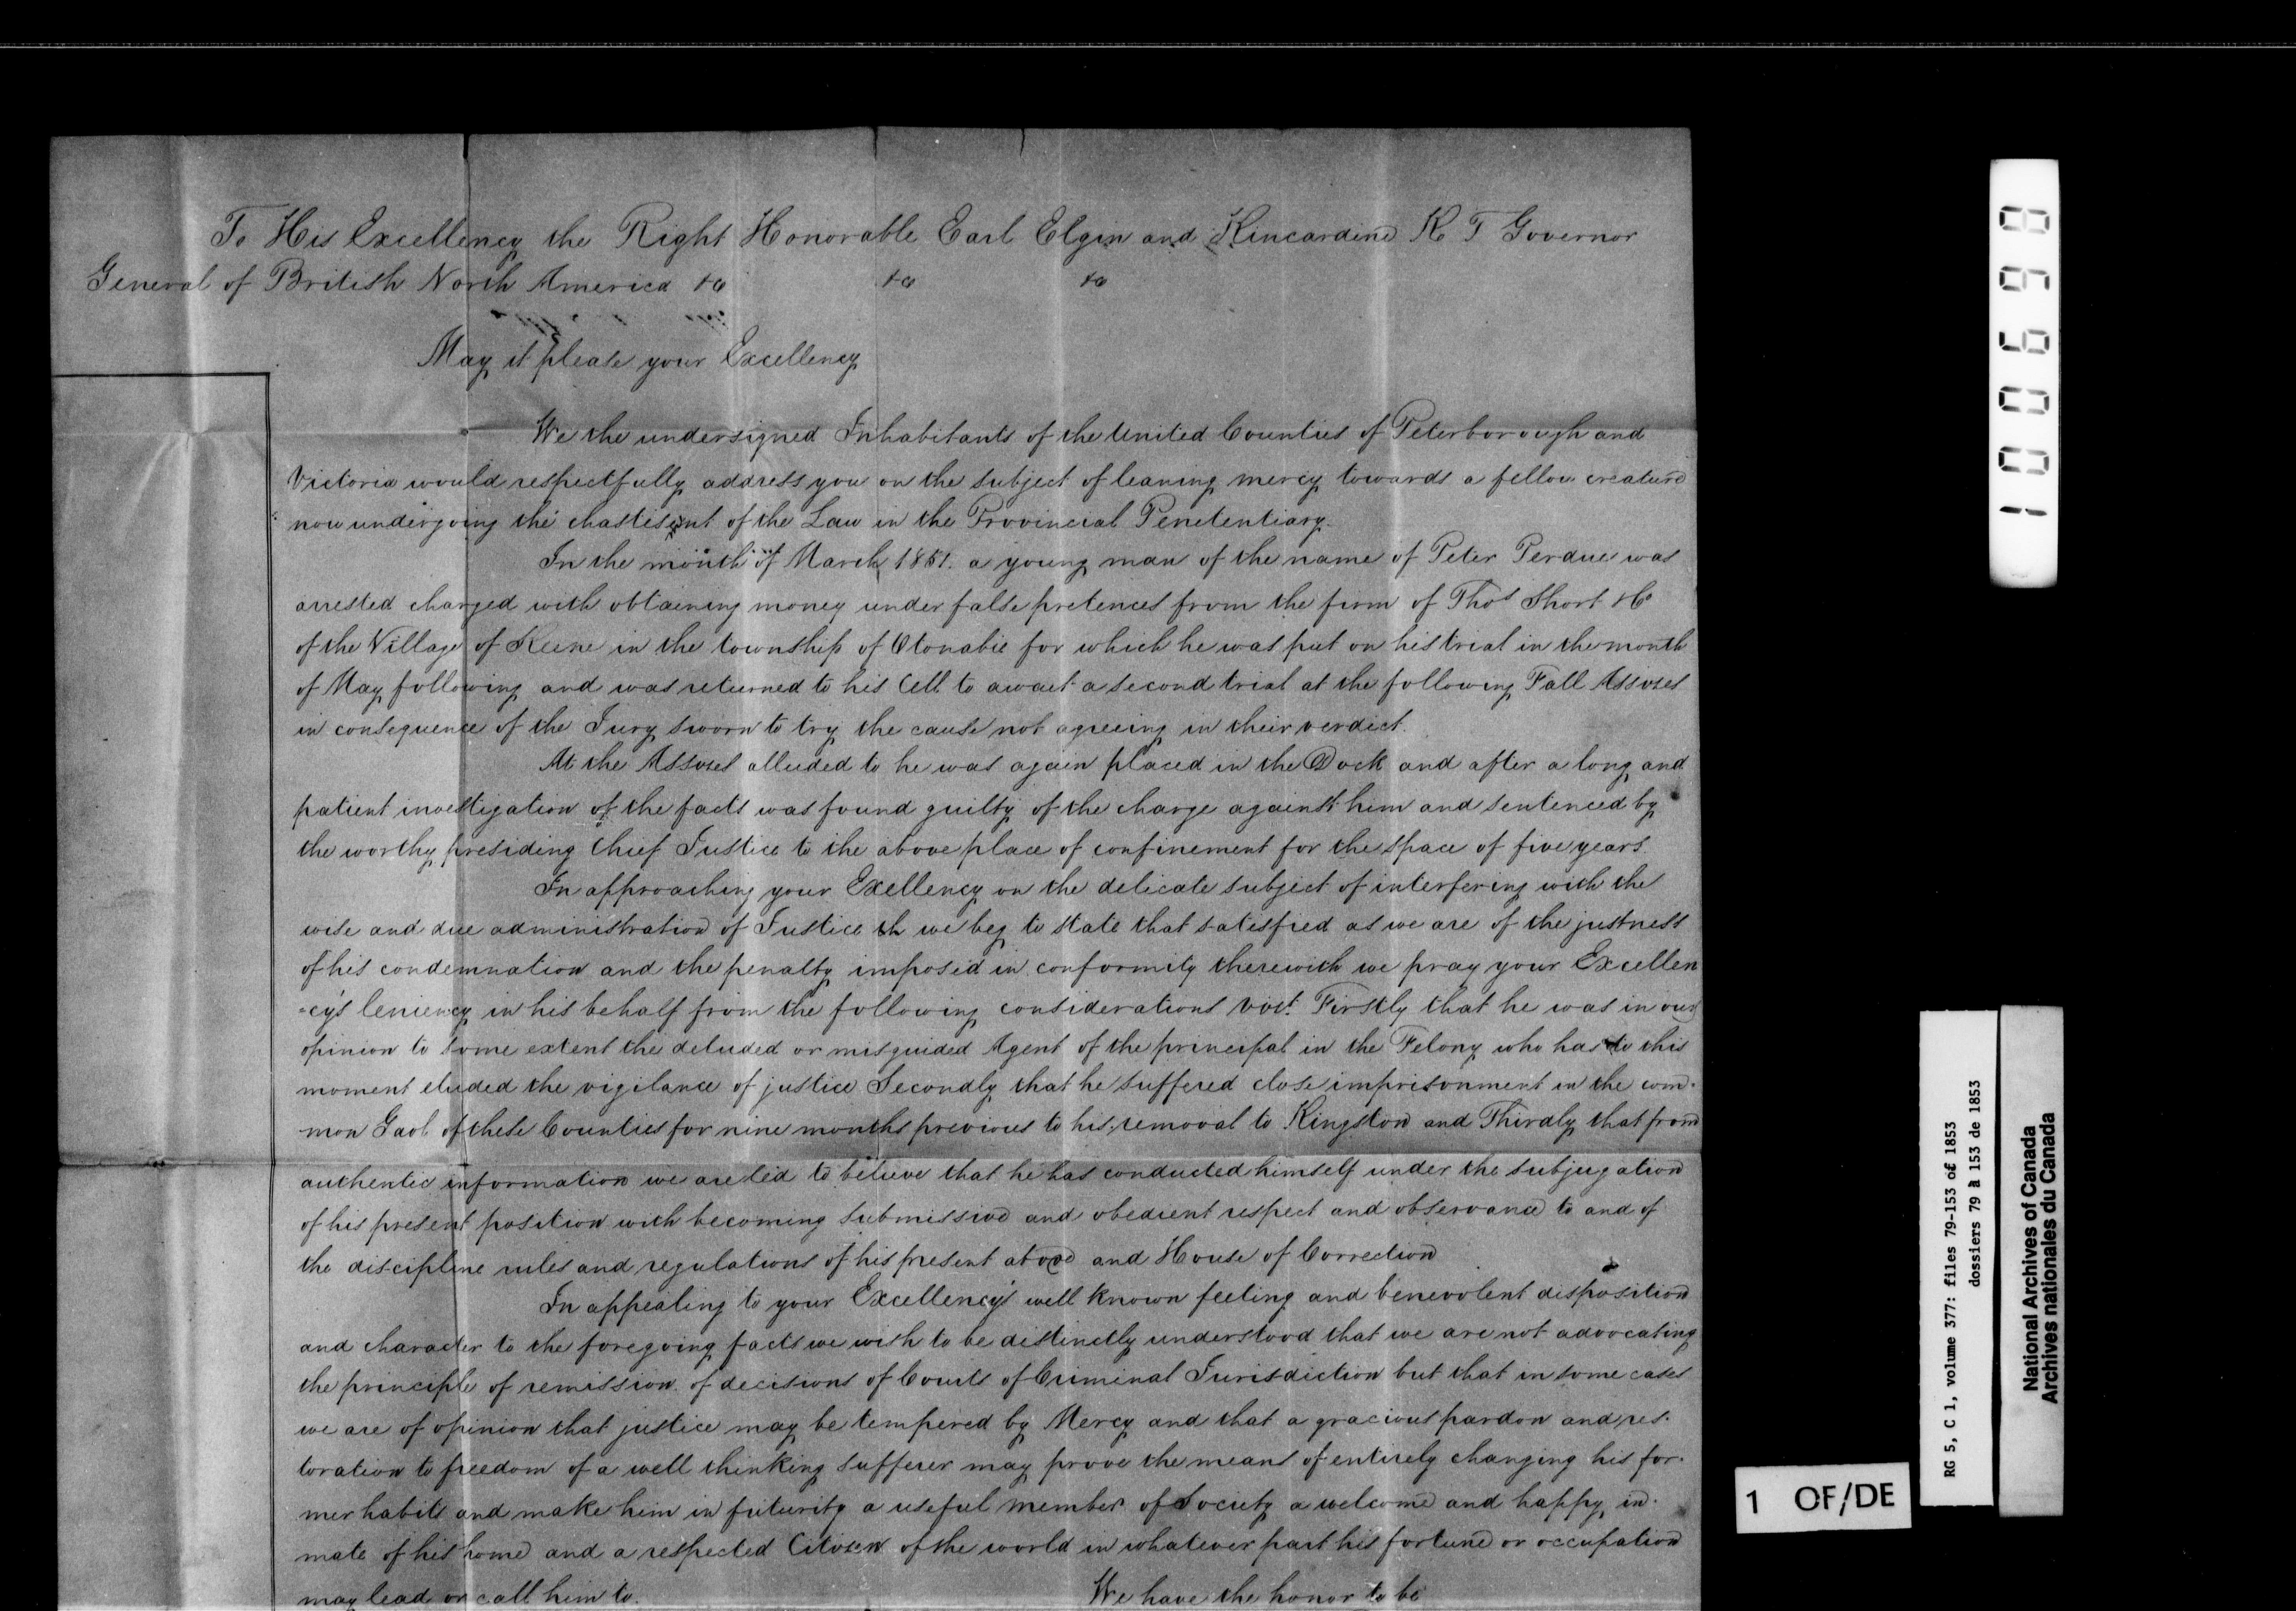 To His Excellency the Right Honorable Earl Elgin and Kincardine K T Governor
General of British North America &c &c &c
May it please your Excellency
We the undersigned Inhabitants of the United Counties of Peterborough and
Victoria would respectfully address you on the subject of leaning mercy towards a fellow creature
now undergoing the chastisment of the Law in the Provincial Penetentiary.
In the month of March 1851. a young man of the name of Peter Perdue was
arrested charged with obtaining money under false pretences from the firm of Thos Short & Co
of the Village of Keene in the township of Otonabie for which he was put on his trial in the month
of May following and was returned to his Cell to await a second trial at the following Fall Assizes
in consequence of the Jury sworn to try the cause not agreeing in their verdict.
At the Assizes alluded to he was again placed in the Dock and after a long and
patient investigation of the facts was found guilty of the charge against him and sentenced by
the worthy presiding Chief Justice to the above place of confinement for the space of five years.
In approaching your Exellency on the delicate subject of interfering with the
wise and due administration of Justice th we beg to state that satisfied as we are of the justness
of his condemnation and the penalty imposed in conformity therewith we pray your Excellen
-cy's leniency in his behalf from the following considerations vizt. Firstly that he was in our
opinion to some extent the deluded or misguided Agent of the principal in the Felony who has to this
moment eluded the vigilance of justice Secondly that he suffered close imprisonment in the com-
mon Gaol of these Counties for nine months previous to his removal to Kingston and Thirdly that from
authentic information we are led to believe that he has conducted himself under the subjugation
of his present position with becoming submissive and obedient respect and observance to and of
the discipline rules and regulations of his present abode and House of Correction
In appealing to your Excellency's well known feeling and benevolent disposition
and character to the foregoing facts we wish to be distinctly understood that we are not advocating
the principle of remission of decisions of Courts of Criminal Jurisdiction but that in some cases
we are of opinion that justice may be tempered by Mercy and that a gracious pardon and res-
toration to freedom of a well thinking sufferer may prove the means of entirely changing his for-
mer habits and make him in futurity a useful member of Society a welcome and happy in-
mate of his home and a respected Citizen of the world in whatever part his fortune or occupation
may lead or call him to.
We have the honor to be
100698
RG 5, C 1, volume 377: files 79-153 of 1853
dossiers 79 à 153 de 1853
National Archives of Canada
Archives nationales du Canada
1 OF/DE